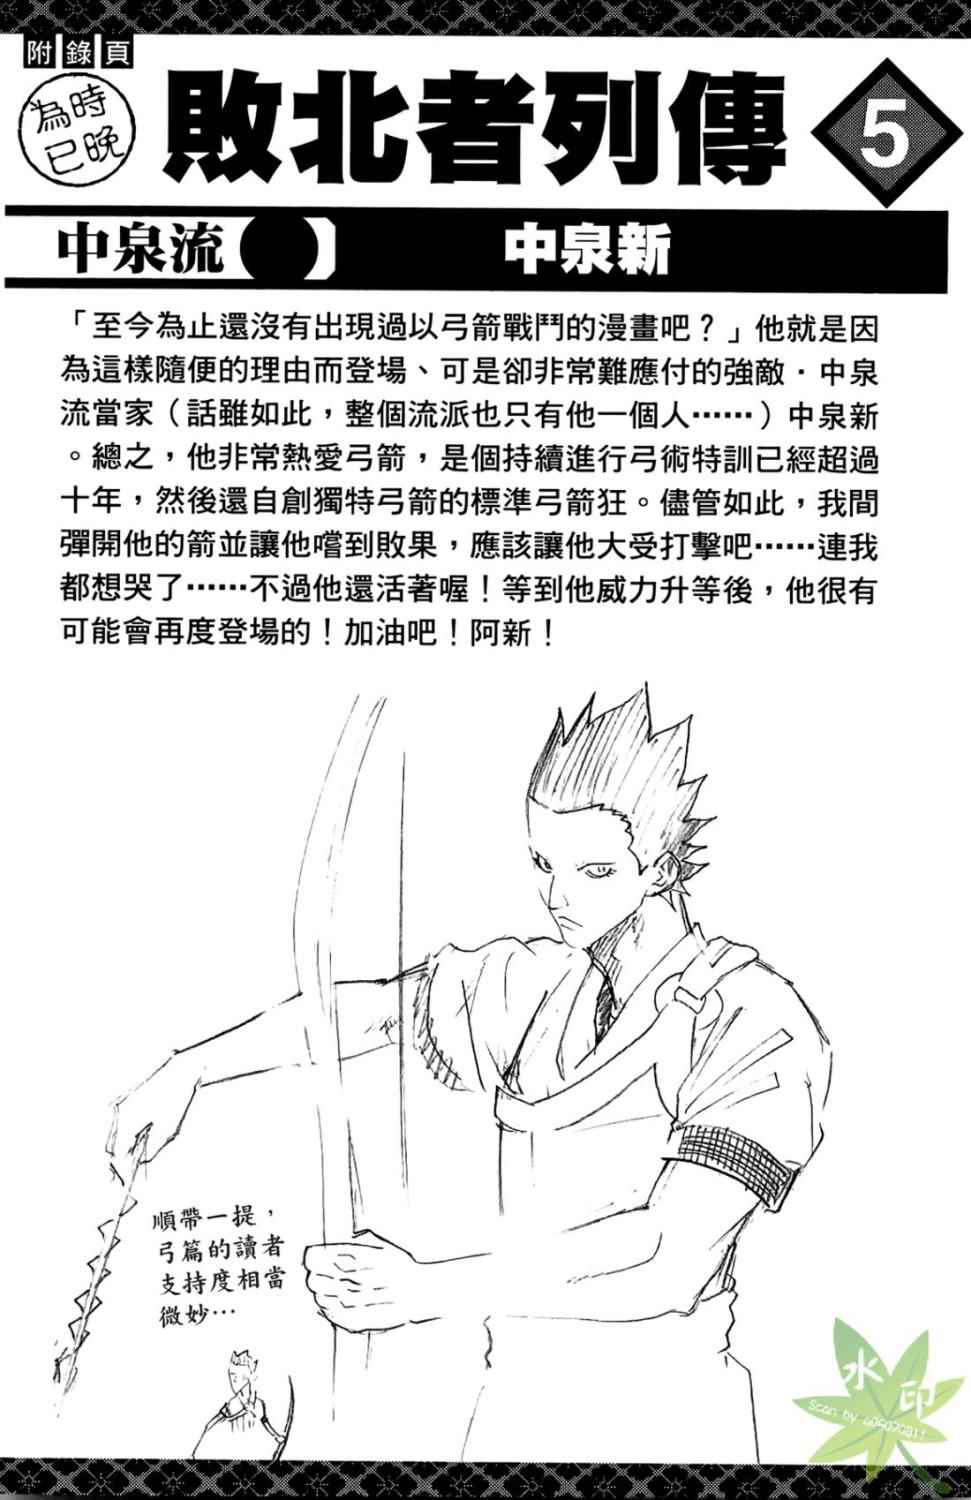 附錄頁
為時
已晚
敗北者列傳
5
中泉流
中泉新
「至今為止還沒有出現過以弓箭戰鬥的漫畫吧？」他就是因
為這樣隨便的理由而登場、可是卻非常難應付的強敵．中泉
流當家（話雖如此，整個流派也只有他一個人……）中泉新
。總之，他非常熱愛弓箭，是個持續進行弓術特訓已經超過
十年，然後還自創獨特弓箭的標準弓箭狂。儘管如此，我間
彈開他的箭並讓他嚐到敗果，應該讓他大受打擊吧……連我
都想哭了……不過他還活著喔！等到他威力升等後，他很有
可能會再度登場的！加油吧！阿新！
順帶一提，
弓篇的讀者
支持度相當
微妙…
水印